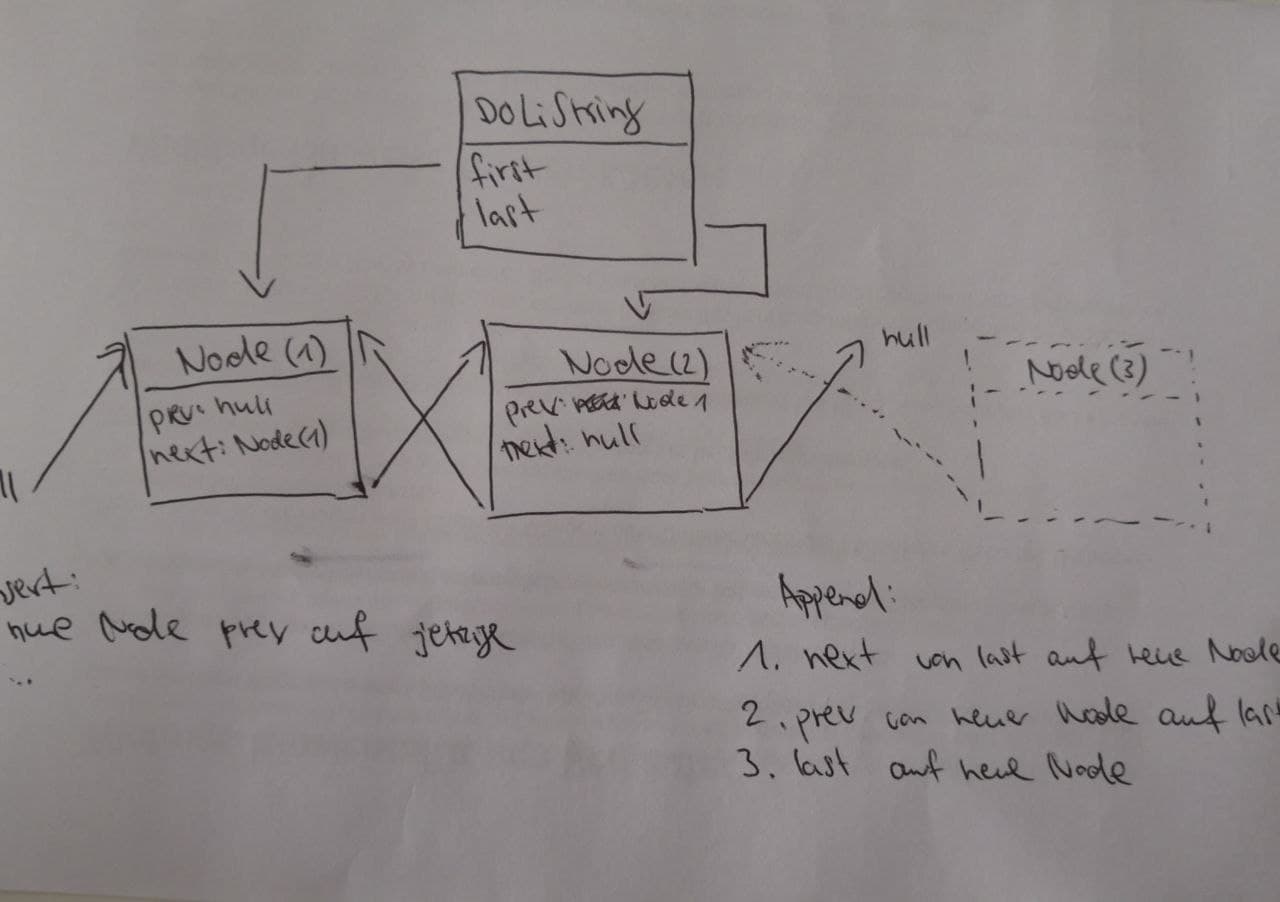 DoLiString
first
last
Node (1)
prev: null
next: Node(1)
Node(2)
prev: Node 1
next: null
null
Node(3)
ll
sert:
neue Node prev auf jetzige
...
Append:
1. next von last auf neue Node
2. prev von neuer Node auf las
3. last auf neue Node